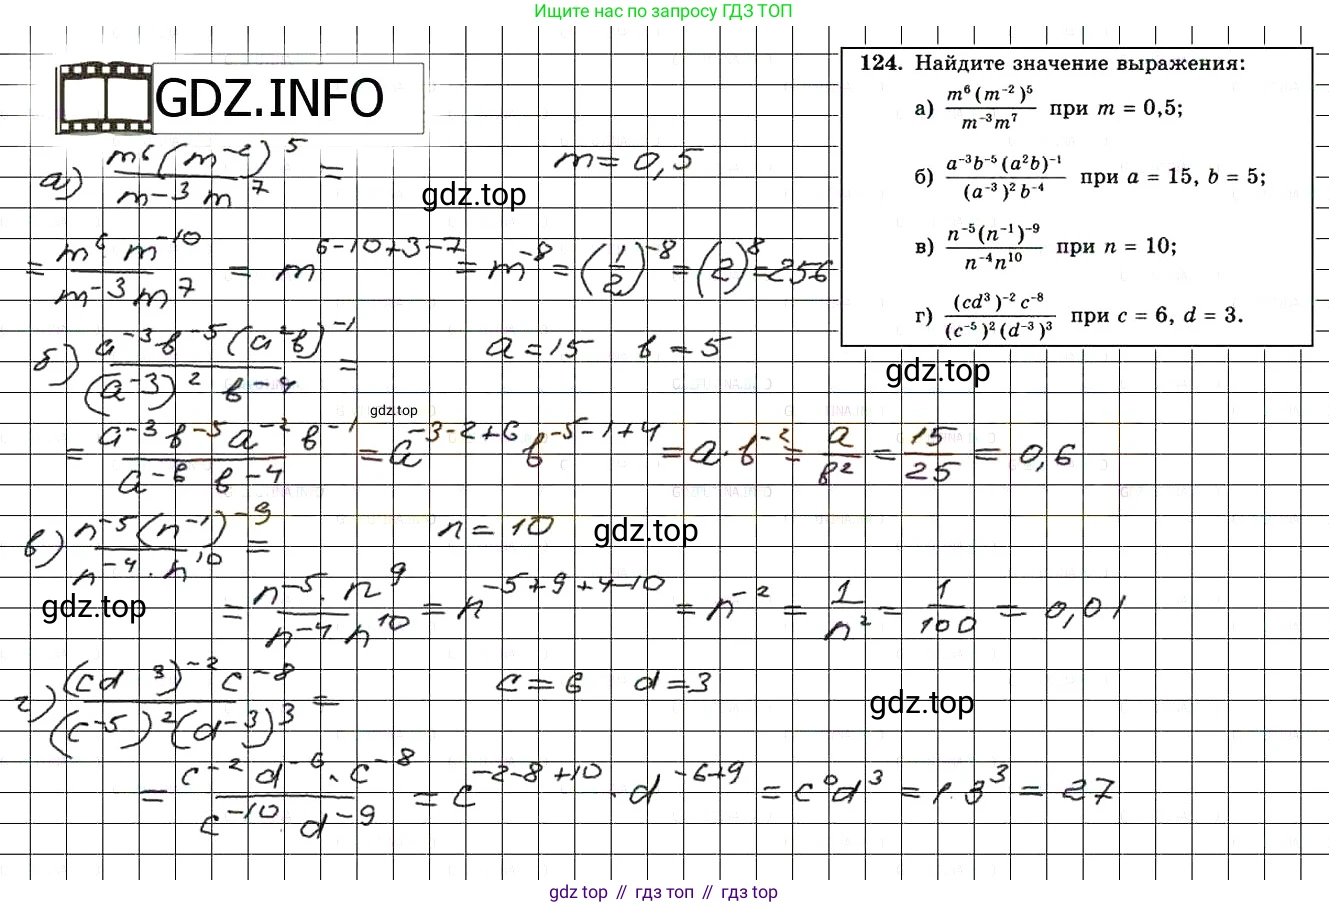 Ищите нас по запросу ГДЗ ТОП
GDZ.INFO
124. Найдите значение выражения:
а) m⁶(m⁻²)⁵ / m⁻³m⁷ при m = 0,5;
б) a⁻³b⁻⁵(a²b)⁻¹ / (a⁻³)²b⁻⁴ при a = 15, b = 5;
в) n⁻⁵(n⁻¹)⁻⁹ / n⁻⁴n¹⁰ при n = 10;
г) (cd³)⁻²c⁻⁸ / (c⁻⁵)²(d⁻³)³ при c = 6, d = 3.
а) m⁶(m⁻²)⁵ / m⁻³m⁷ = m = 0,5
gdz.top
= m⁶ m⁻¹⁰ / m⁻³m⁷ = m⁶⁻¹⁰⁺³⁻⁷ = m⁻⁸ = (1/2)⁻⁸ = (2)⁸ = 256
б) a⁻³b⁻⁵(a²b)⁻¹ / (a⁻³)² b⁻⁴ = a = 15 b = 5
gdz.top
gdz.top
= a⁻³b⁻⁵a⁻² b⁻¹ / a⁻⁶ b⁻⁴ = a⁻³⁻²⁺⁶ b⁻⁵⁻¹⁺⁴ = a·b⁻² = a/b² = 15/25 = 0,6
в) n⁻⁵(n⁻¹)⁻⁹ / n⁻⁴·n¹⁰ = n = 10
gdz.top
gdz.top
= n⁻⁵·n⁹ / n⁻⁴ n¹⁰ = n⁻⁵⁺⁹⁺⁴⁻¹⁰ = n⁻² = 1/n² = 1/100 = 0,01
г) (cd³)⁻²c⁻⁸ / (c⁻⁵)²(d⁻³)³ = c = 6 d = 3
gdz.top
= c⁻²d⁻⁶·c⁻⁸ / c⁻¹⁰ d⁻⁹ = c⁻²⁻⁸⁺¹⁰·d⁻⁶⁺⁹ = c⁰d³ = 1·3³ = 27
gdz top // гдз топ // гдз top